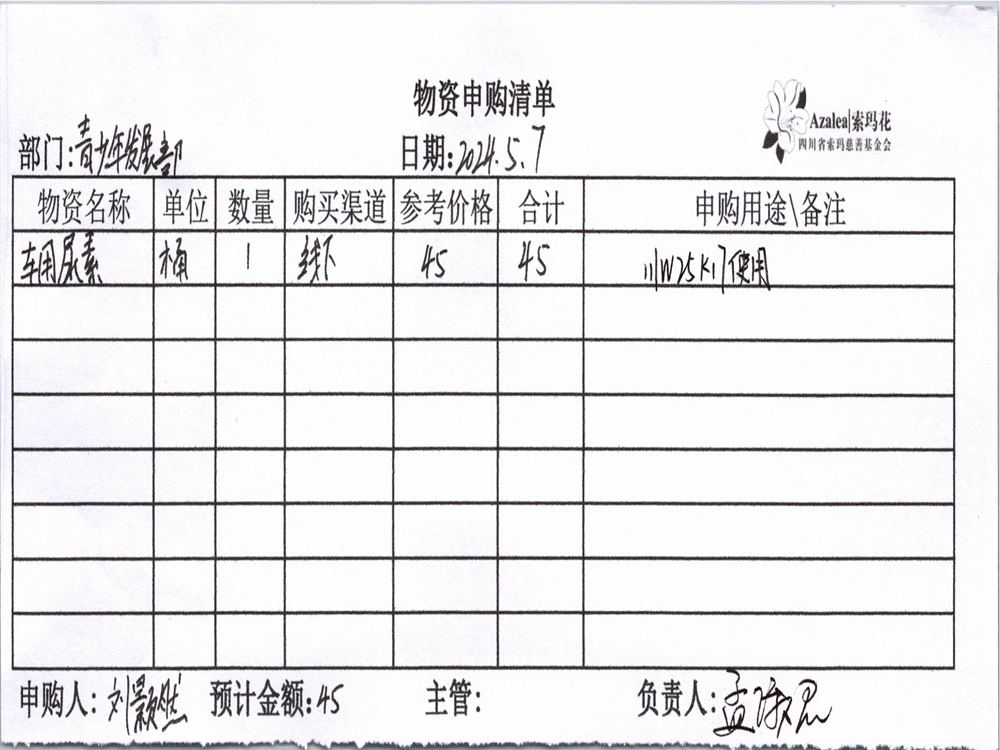 物资申购清单
Azalea|索玛花
四川省索玛慈善基金会
部门:青少年发展部 日期:2024.5.7
物资名称 单位 数量 购买渠道 参考价格 合计 申购用途\备注
车用尿素 桶 1 线下 45 45 川W25K17使用
申购人:刘颢然 预计金额:45 主管: 负责人:孟